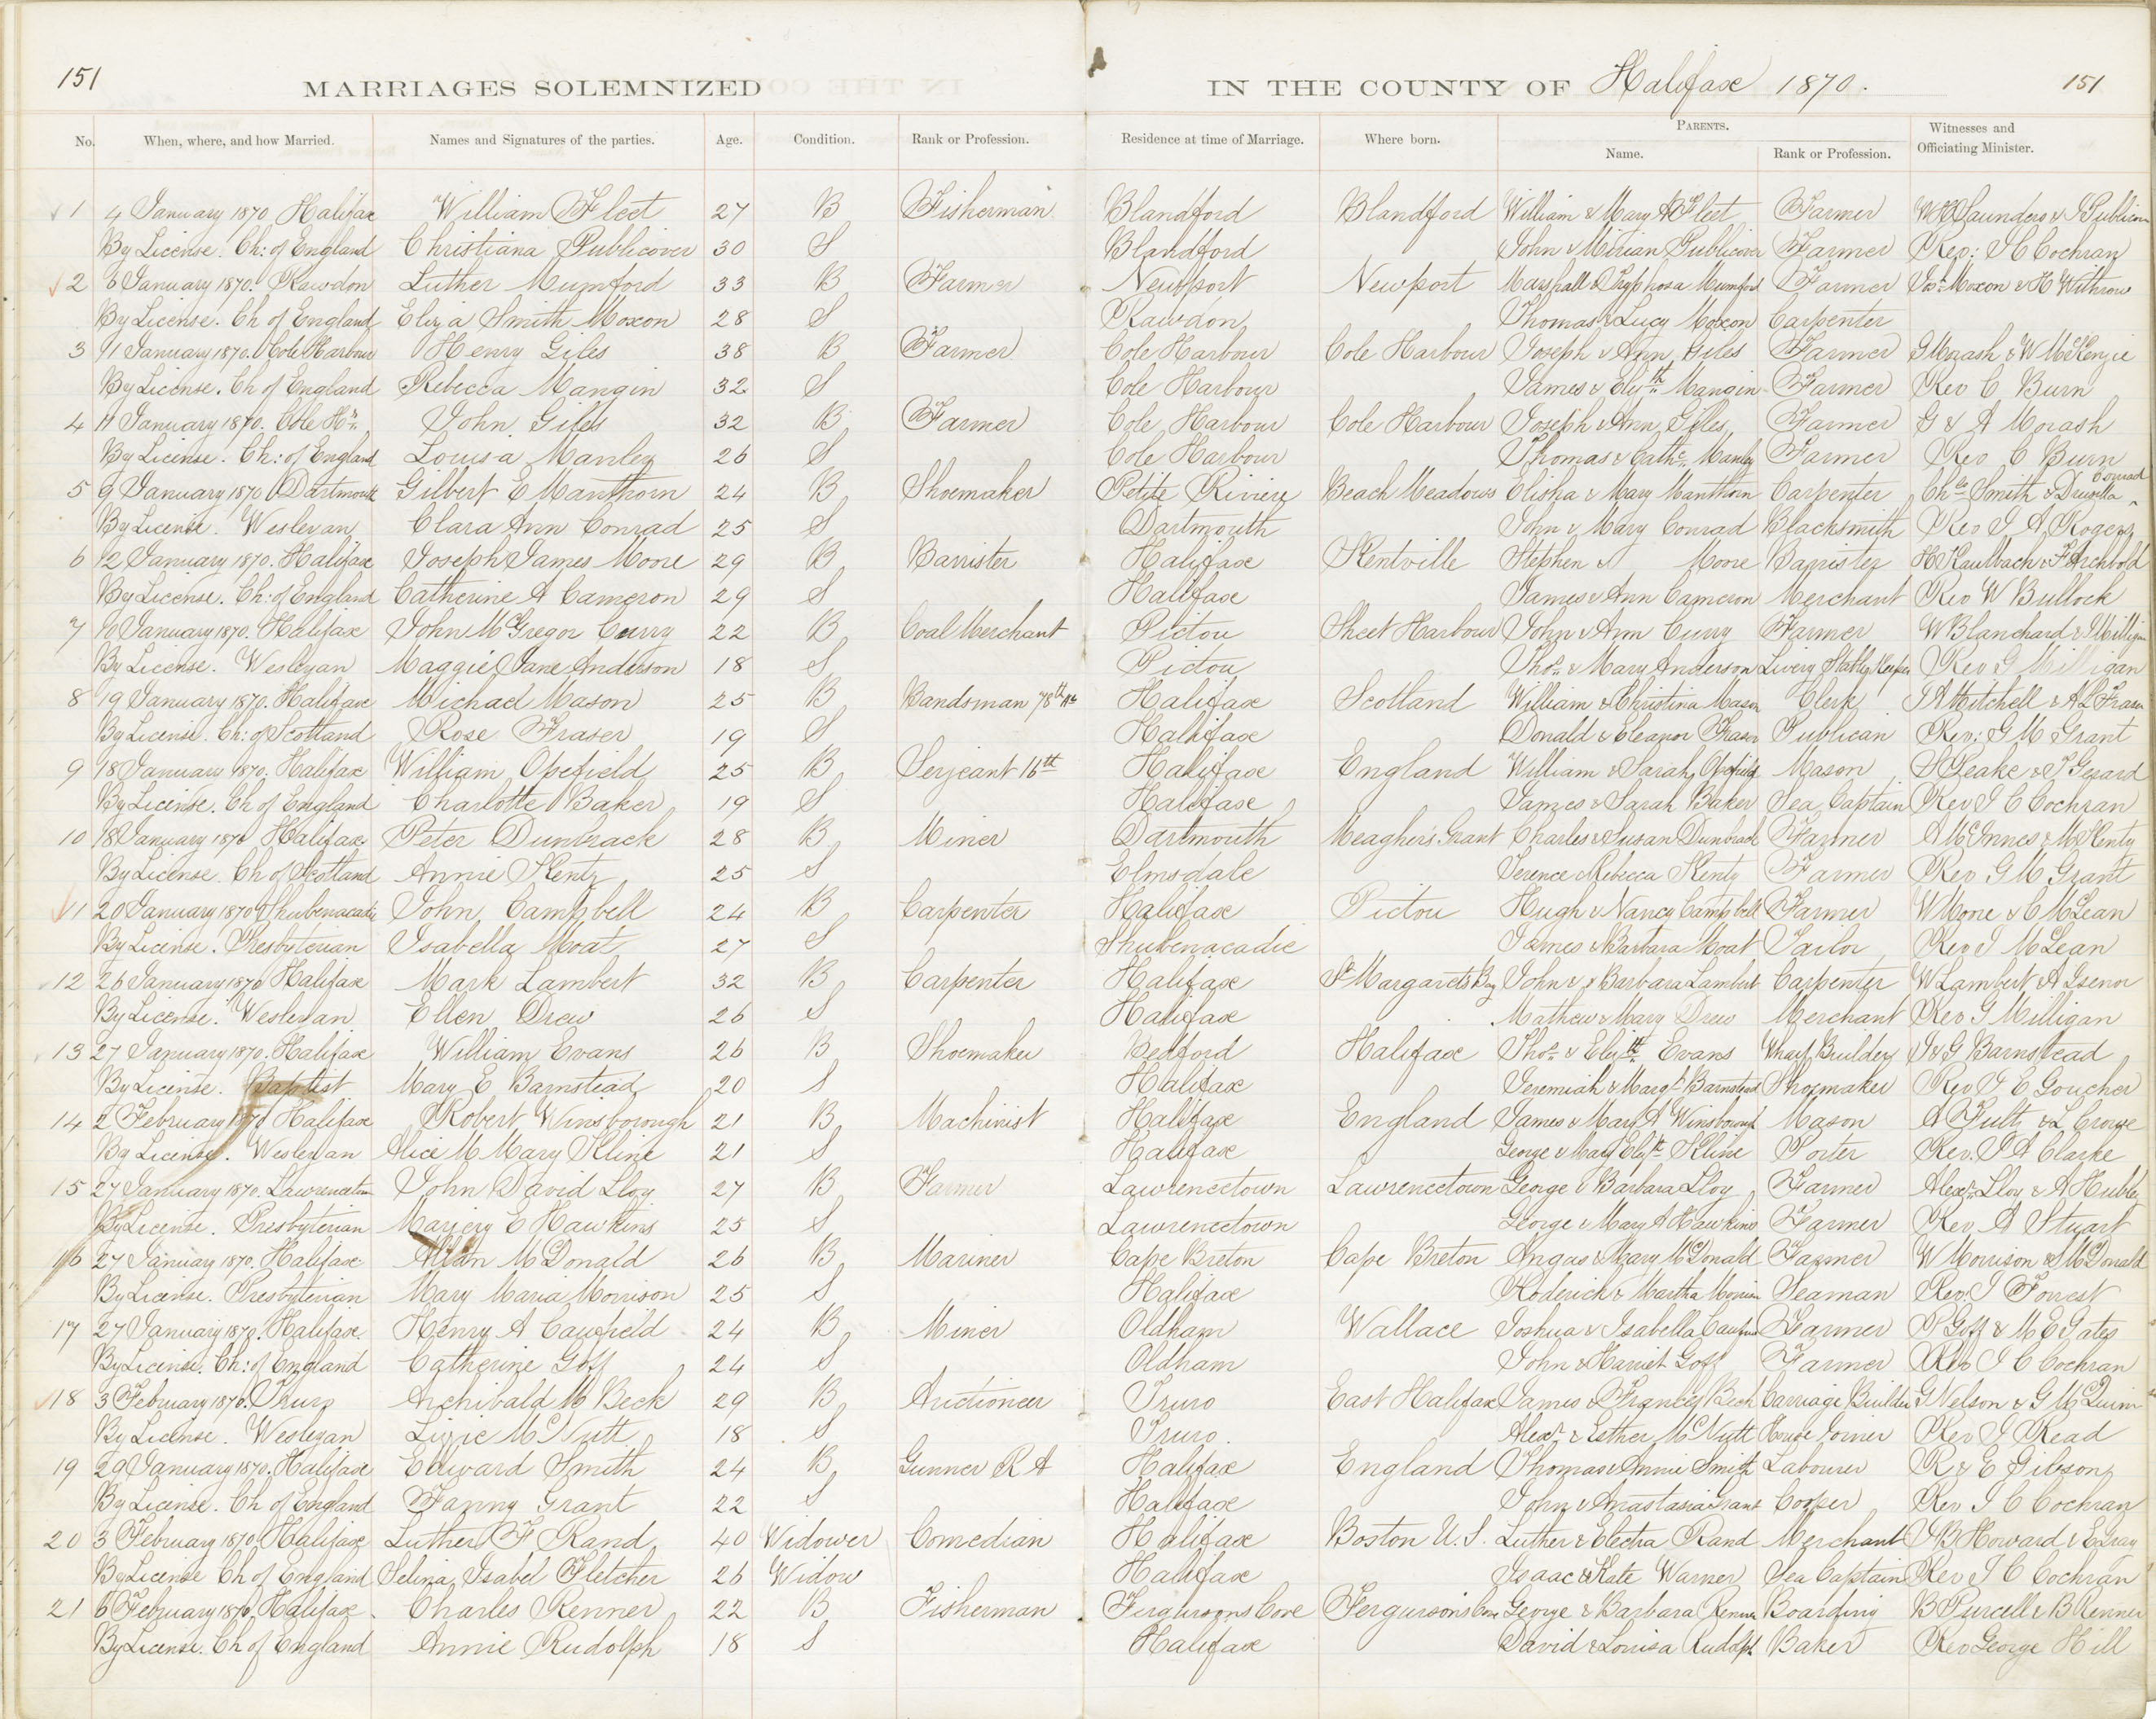 151 MARRIAGES SOLEMNIZED IN THE COUNTY OF Halifax 1870. 151
No. When, where, and how Married. Names and Signatures of the parties. Age. Condition. Rank or Profession. Residence at time of Marriage. Where born. PARENTS. Name. Rank or Profession. Witnesses and Officiating Minister.
1 4 January 1870 Halifax William Fleet 27 B Fisherman Blandford Blandford William & Mary A Fleet Farmer W H Saunders & J Publicover
By License. Ch: of England Christiana Publicover 30 S Blandford John & Mirian Publicover Farmer Rev: J C Cochran
2 6 January 1870. Rawdon Luther Mumford 33 B Farmer Newport Newport Marshall & Tryphosa Mumford Farmer Jas Moxon & H Withrow
By License. Ch of England Eliza Smith Moxon 28 S Rawdon Thomas & Lucy Moxon Carpenter
3 11 January 1870. Cole Harbour Henry Giles 38 B Farmer Cole Harbour Cole Harbour Joseph & Ann Giles Farmer G Morash & W McKenzie
By License. Ch of England Rebecca Mangin 32 S Cole Harbour James & Elizth Mangin Farmer Rev C Burn
4 11 January 1870. Cole Hr. John Giles 32 B Farmer Cole Harbour Cole Harbour Joseph & Ann Giles Farmer G & A Morash
By License. Ch: of England Louisa Manley 26 S Cole Harbour Thomas & Cathe. Manley Farmer Rev C Burn
5 9 January 1870 Dartmouth Gilbert E Manthorn 24 B Shoemaker Petite Riviere Beach Meadows Elisha & Mary Manthorn Carpenter Chls Smith & Drusilla Conrad
By License. Wesleyan Clara Ann Conrad 25 S Dartmouth John & Mary Conrad Blacksmith Rev J A Rogers
6 12 January 1870. Halifax Joseph James Moore 29 B Barrister Halifax Kentville Stephen & Moore Barrister H Kaulbach & F Archbold
By License. Ch: of England Catherine A Cameron 29 S Halifax James & Ann Cameron Merchant Rev W Bullock
7 10 January 1870. Halifax John McGregor Curry 22 B Coal Merchant Pictou Sheet Harbour John & Ann Curry Farmer W Blanchard & J Milligan
By License. Wesleyan Maggie Jane Anderson 18 S Pictou Thos. & Mary Anderson Livery Stable Keeper Rev G Milligan
8 19 January 1870. Halifax Michael Mason 25 B Bandsman 78th Halifax Scotland William & Christina Mason Clerk J A Mitchell & A L Fraser
By License. Ch: of Scotland Rose Fraser 19 S Halifax Donald & Eleanor Fraser Publican Rev: G M Grant
9 18 January 1870. Halifax William Opefield 25 B Serjeant 16th Halifax England William & Sarah Opefield Mason S Leake & J Gerard
By License. Ch of England Charlotte Baker 19 S Halifax James & Sarah Baker Sea Captain Rev J C Cochran
10 18 January 1870 Halifax Peter Dunbrack 28 B Miner Dartmouth Meagher's Grant Charles & Susan Dunbrack Farmer A McInnes & M Kenty
By License. Ch of Scotland Annie Kenty 25 S Elmsdale Terence Rebecca Kenty Farmer Rev G M Grant
11 20 January 1870 Shubenacadie John Campbell 24 B Carpenter Halifax Pictou Hugh & Nancy Campbell Farmer W More & C McLean
By License. Presbyterian Isabella Moat 27 S Shubenacadie James & Barbara Moat Tailor Rev J McLean
12 26 January 1870 Halifax Mark Lambert 32 B Carpenter Halifax St Margarets Bay John & Barbara Lambert Carpenter W Lambert & A Isenor
By License. Wesleyan Ellen Drew 26 S Halifax Mathew & Mary Drew Merchant Rev G Milligan
13 27 January 1870. Halifax William Evans 26 B Shoemaker Bedford Halifax Thos. & Elizth Evans Wharf Builder J & G Barnstead
By License. Baptist Mary E Barnstead 20 S Halifax Jeremiah & Margt. Barnstead Shoemaker Rev J E Goucher
14 2 February 1870 Halifax Robert Winsborough 21 B Machinist Halifax England James & Mary A Winsborough Mason A Fultz & L Crowe
By License. Wesleyan Alice M Mary Kline 21 S Halifax George & Mary Elizth Kline Porter Rev. J A Clarke
15 27 January 1870. Lawrencetown John David Lloy 27 B Farmer Lawrencetown Lawrencetown George & Barbara Lloy Farmer Alexr. Lloy & A Hubley
By License. Presbyterian Marjery E Hawkins 25 S Lawrencetown George & Mary A Hawkins Farmer Rev A Stuart
16 27 January 1870. Halifax Allan McDonald 26 B Mariner Cape Breton Cape Breton Angus & Mary McDonald Farmer W Morrison & S McDonald
By License. Presbyterian Mary Maria Morrison 25 S Halifax Roderick & Martha Morrison Seaman Rev. J Forrest
17 27 January 1870. Halifax. Henry A Caufield 24 B Miner Oldham Wallace Joshua & Isabella Caufield Farmer P Goff & M E Yates
By License. Ch: of England Catherine Goff 24 S Oldham John & Harriet Goff Farmer Rev J C Cochran
18 3 February 1870. Truro Archibald M Beck 29 B Auctioneer Truro East Halifax James & Frances Beck Carriage Builder G Nelson & G McQuinn
By License. Wesleyan Lizzie McNutt 18 S Truro. Alexr. & Esther McNutt House Joiner Rev J Read
19 29 January 1870. Halifax Edward Smith 24 B Gunner R A Halifax England Thomas & Annie Smith Labourer R & E Gibson
By License. Ch of England Fanny Grant 22 S Halifax John & Anastasia Grant Cooper Rev J C Cochran
20 3 February 1870. Halifax Luther F Rand 40 Widower Comedian Halifax Boston U.S. Luther & Electra Rand Merchant J B Howard & E Gray
By License Ch of England Selina Isabel Fletcher 26 Widow Halifax Isaac & Kate Warner Sea Captain Rev J C Cochran
21 6 February 1870 Halifax. Charles Renner 22 B Fisherman Fergursons Cove Fergursons Cove George & Barbara Renner Boarding B Purcell & B Renner
By License. Ch of England Annie Rudolph 18 S Halifax David & Louisa Rudolph Baker Rev George Hill